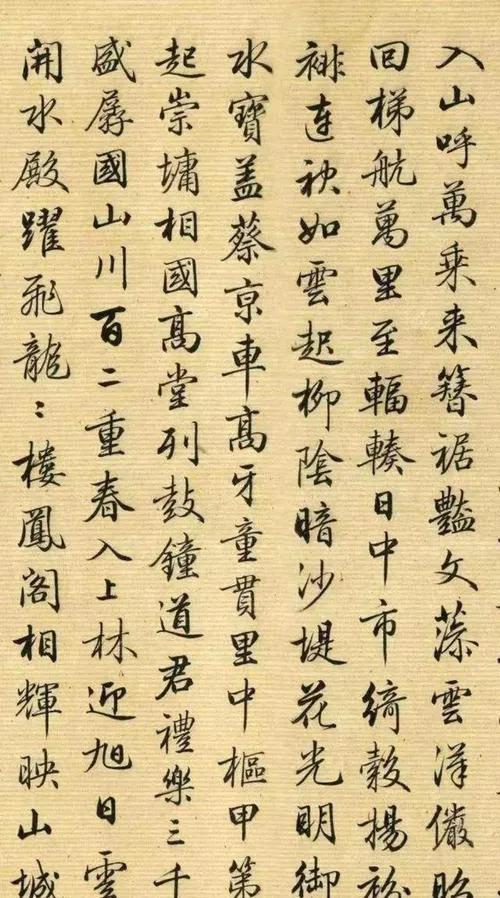 入山呼萬乗来簪裾豔文藻雲漢儼昭
回梯航萬里至輻輳日中市綺縠揚衯
裶連袂如雲起柳陰暗沙堤花光明御
水寶盖蔡京車高牙童貫里中樞甲第
起崇墉相國高堂列鼓鐘道君禮樂三千
盛孱國山川百二重春入上林迎旭日雲
開水殿躍飛龍〻樓鳳閣相輝映山城